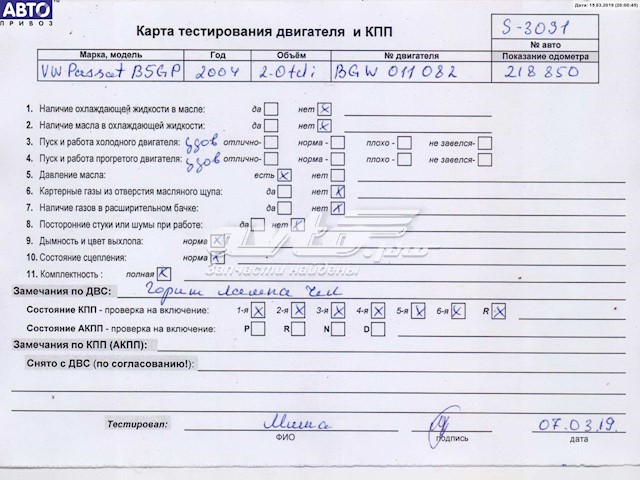 АВТО
ПРИВОЗ
Дата: 15.03.2019 (20:00:45)
Карта тестирования двигателя и КПП
S-3031
№ авто
Марка, модель Год Объём № двигателя Показание одометра
VW Passat B5GP 2004 2.0tdi BGW 011082 218 850
1. Наличие охлаждающей жидкости в масле: да нет x
2. Наличие масла в охлаждающей жидкости: да нет x
3. Пуск и работа холодного двигателя: удов отлично- норма - плохо - не завелся-
4. Пуск и работа прогретого двигателя: удов отлично- норма - плохо - не завелся-
5. Давление масла: есть x нет
6. Картерные газы из отверстия масляного щупа: да нет x
7. Наличие газов в расширительном бачке: да нет x
8. Посторонние стуки или шумы при работе: да нет x
9. Дымность и цвет выхлопа: норма x
10. Состояние сцепления: норма x
11. Комплектность : полная x
Запчасти найдены
Замечания по ДВС: Горит лампа Чек
Состояние КПП - проверка на включение: 1-я x 2-я x 3-я x 4-я x 5-я x 6-я x R x
Состояние АКПП - проверка на включение: P R N D
Замечания по КПП (АКПП):
Снято с ДВС (по согласованию!):
Тестировал: Миша 07.03.19.
ФИО подпись дата